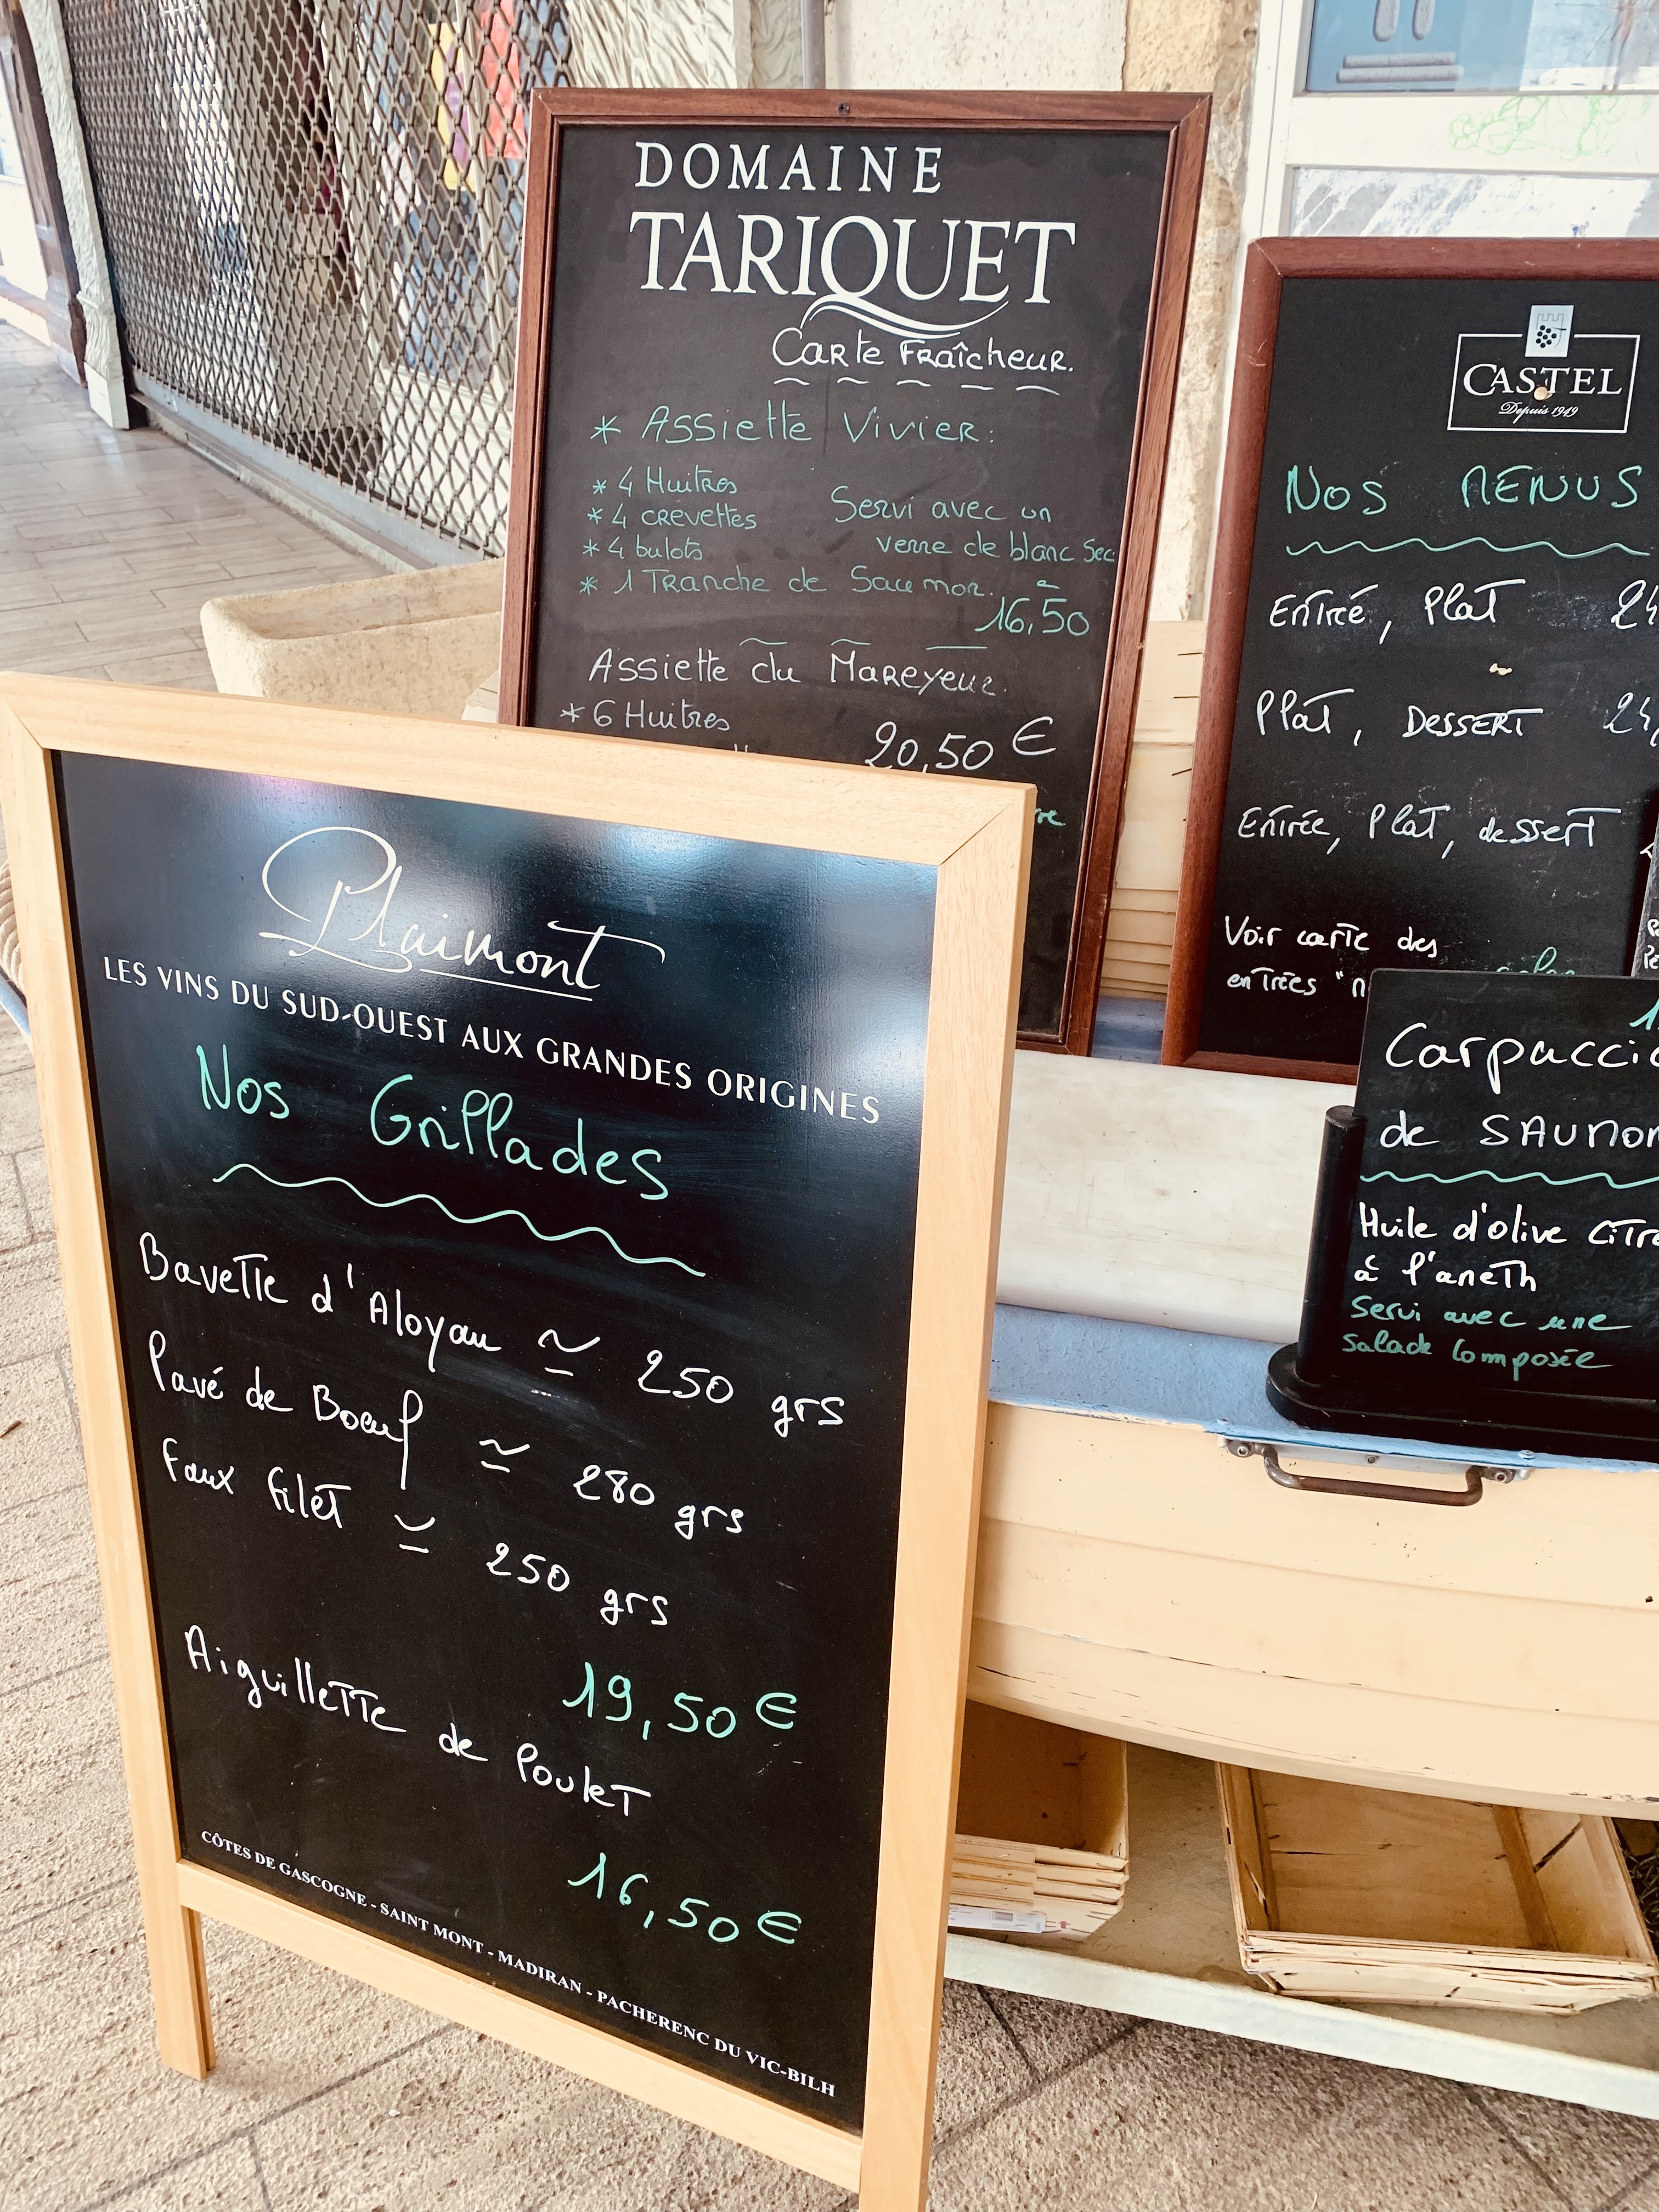 DOMAINE
TARIQUET
Carte Fraîcheur.
* Assiette Vivier:
* 4 Huitres
* 4 crevettes
* 4 bulots
* 1 Tranche de Saumon.
Servi avec un
verre de blanc Sec
16,50
Assiette du Mareyeur.
* 6 Huitres
20,50 €
CASTEL
Depuis 1949
Nos MENUS
Entré, Plat
Plat, DESSERT
Entrée, Plat, dessert
Voir carte des
entrées
Carpaccio
de SAUMON
Huile d'olive
à l'aneth
Servi avec une
salade composée
Plaimont
LES VINS DU SUD-OUEST AUX GRANDES ORIGINES
Nos Grillades
Bavette d'Aloyau ≃ 250 grs
Pavé de Boeuf ≃ 280 grs
Faux filet ≃ 250 grs
19,50 €
Aiguillette de Poulet
16,50 €
CÔTES DE GASCOGNE - SAINT MONT - MADIRAN - PACHERENC DU VIC-BILH